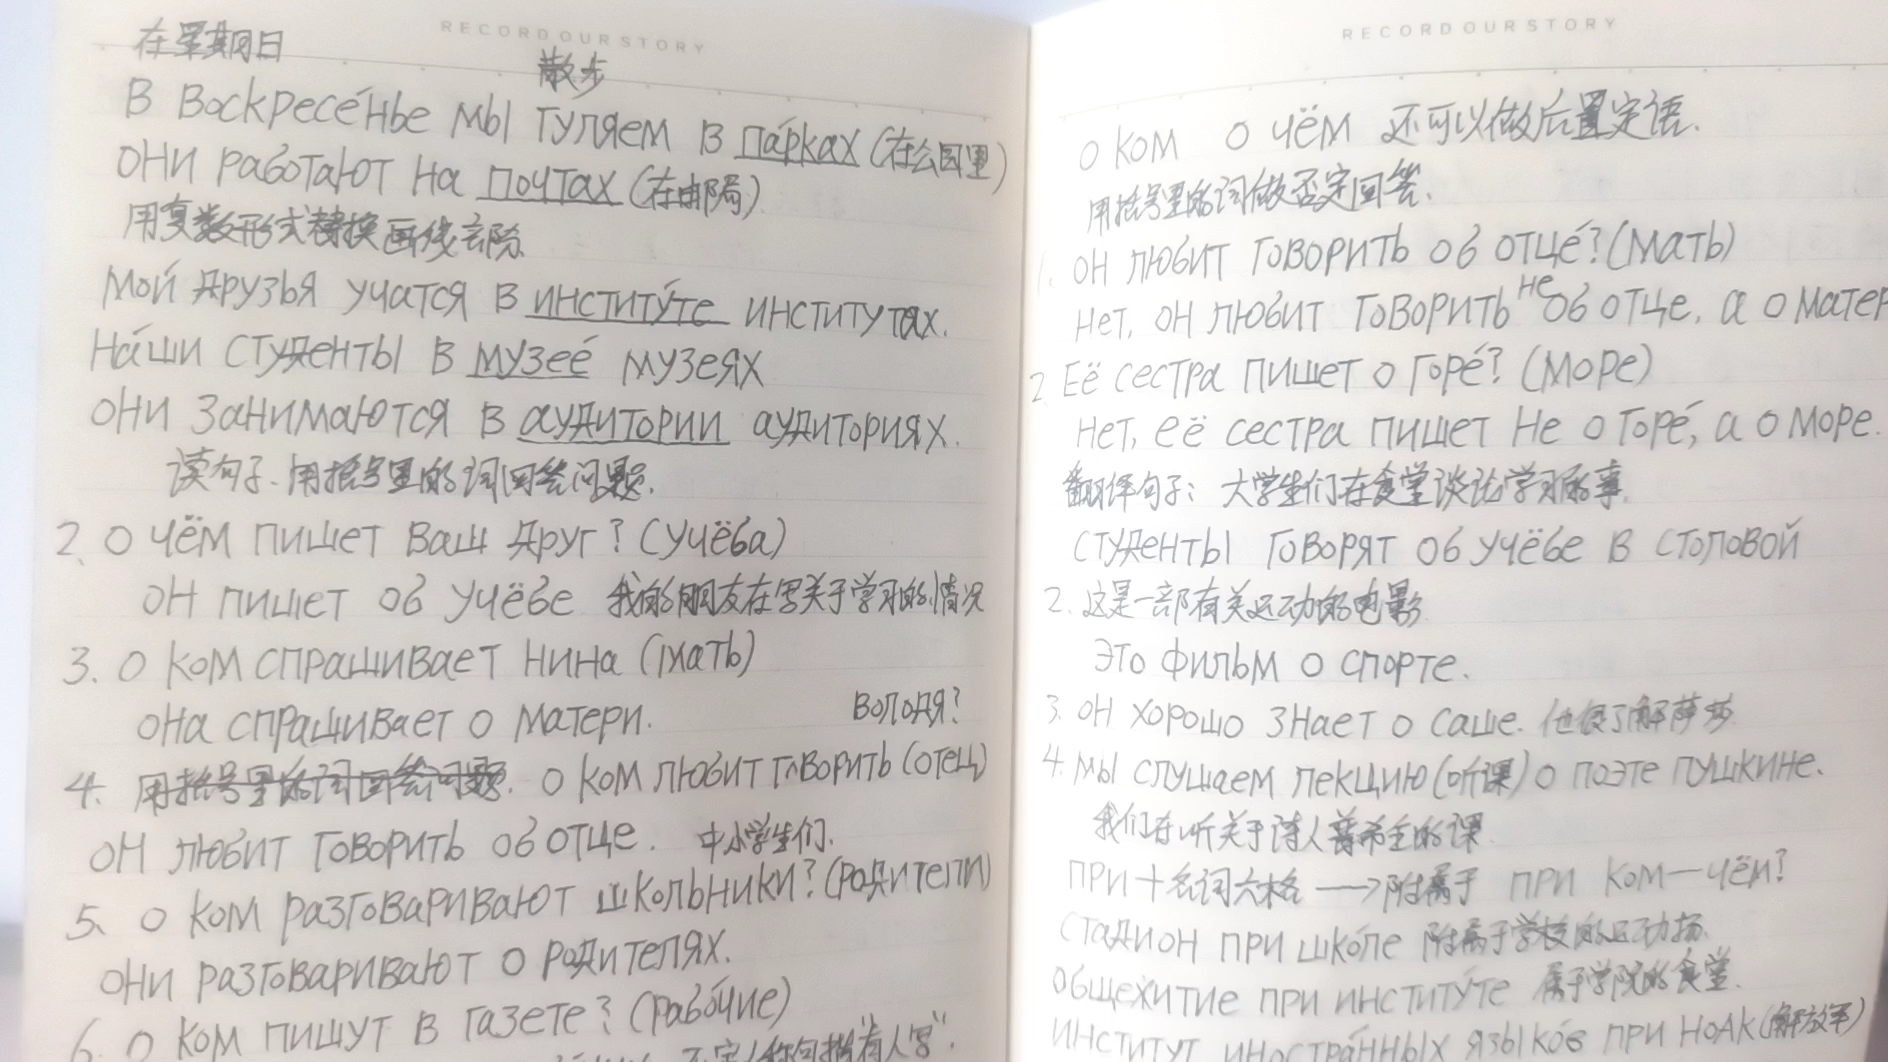 RECORD OUR STORY
在星期日
散步
В воскресе́нье мы гуляем в па́рках (在公园里)
они работают на почтах (在邮局)
用复数形式替换画线部分
Мой друзья учатся в институ́те институтах.
На́ши студенты в музее́ музеях
они занимаются в аудитории аудиториях.
读句子、用括号里的词回答问题.
2. о чём пишет ваш друг? (учёба)
он пишет об учёбе 我的朋友在写关于学习的情况
3. о ком спрашивает Нина (мать)
она спрашивает о матери.
Володя?
4. 用括号里的词回答问题. о ком любит говорить (отец)
он любит говорить об отце. 中小学生们.
5. о ком разговаривают школьники? (родители)
они разговаривают о родителях.
6. о ком пишут в газете? (рабо́чие)
RECORD OUR STORY
о ком о чём 还可以做后置定语.
用括号里的词做否定回答.
1. он любит говорить об отце́? (мать)
не
Нет, он любит говорить об отце, а о матер
2. Её сестра пишет о горе́? (море)
Нет, её сестра пишет не о горе́, а о море.
翻译句子: 大学生们在食堂谈论学习的事.
студенты говорят об учёбе в столовой
2. 这是一部有关运动的电影
это фильм о спорте.
3. он хорошо знает о саше. 他很了解萨莎
4. мы слушаем лекцию (听课) о поэте пушкине.
我们在听关于诗人普希金的课
при 十名词六格 —> 附属于 при ком — чём?
стадион при шко́ле 附属于学校的运动场
общежитие при институ́те 属于学院的食堂.
институт иностра́нных языко́в при НОАК (解放军)